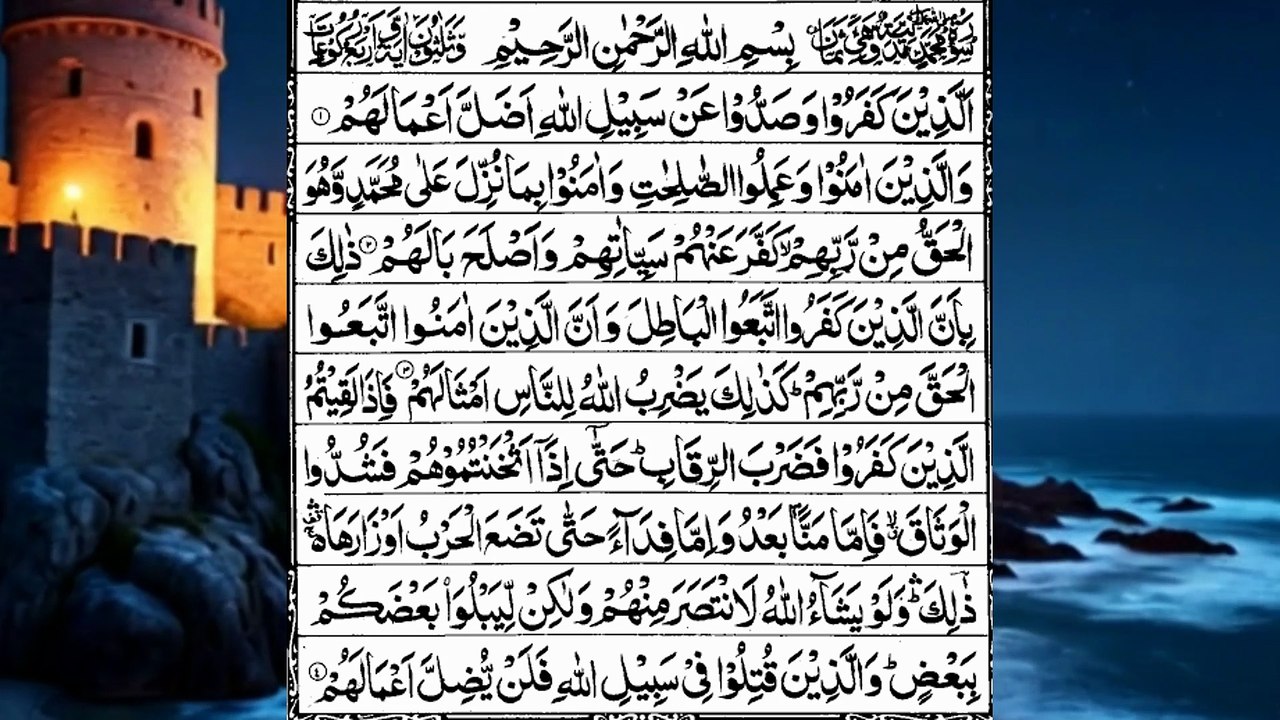 سورة محمد مدنية وهي ثمان بِسْمِ اللهِ الرَّحْمٰنِ الرَّحِيْمِ وَّثَلٰثُوْنَ اٰيَةً وَّاَرْبَعُ رُكُوْعَاتٍ
اَلَّذِيْنَ كَفَرُوْا وَصَدُّوْا عَنْ سَبِيْلِ اللهِ اَضَلَّ اَعْمَالَهُمْ ۝۱
وَالَّذِيْنَ اٰمَنُوْا وَعَمِلُوا الصّٰلِحٰتِ وَاٰمَنُوْا بِمَا نُزِّلَ عَلٰى مُحَمَّدٍ وَّهُوَ
الْحَقُّ مِنْ رَّبِّهِمْ ۙ كَفَّرَ عَنْهُمْ سَيِّاٰتِهِمْ وَاَصْلَحَ بَالَهُمْ ۝۲ ذٰلِكَ
بِاَنَّ الَّذِيْنَ كَفَرُوا اتَّبَعُوا الْبَاطِلَ وَاَنَّ الَّذِيْنَ اٰمَنُوا اتَّبَعُوا
الْحَقَّ مِنْ رَّبِّهِمْ ؕ كَذٰلِكَ يَضْرِبُ اللهُ لِلنَّاسِ اَمْثَالَهُمْ ۝۳ فَاِذَا لَقِيْتُمُ
الَّذِيْنَ كَفَرُوْا فَضَرْبَ الرِّقَابِ ؕ حَتّٰۤى اِذَاۤ اَثْخَنْتُمُوْهُمْ فَشُدُّوا
الْوَثَاقَ ۙ فَاِمَّا مَنًّۢا بَعْدُ وَاِمَّا فِدَآءً حَتّٰى تَضَعَ الْحَرْبُ اَوْزَارَهَا
ذٰلِكَ ؕ وَلَوْ يَشَآءُ اللهُ لَانْتَصَرَ مِنْهُمْ وَلٰكِنْ لِّيَبْلُوَا۟ بَعْضَكُمْ
بِبَعْضٍ ؕ وَالَّذِيْنَ قُتِلُوْا فِيْ سَبِيْلِ اللهِ فَلَنْ يُّضِلَّ اَعْمَالَهُمْ ۝۴